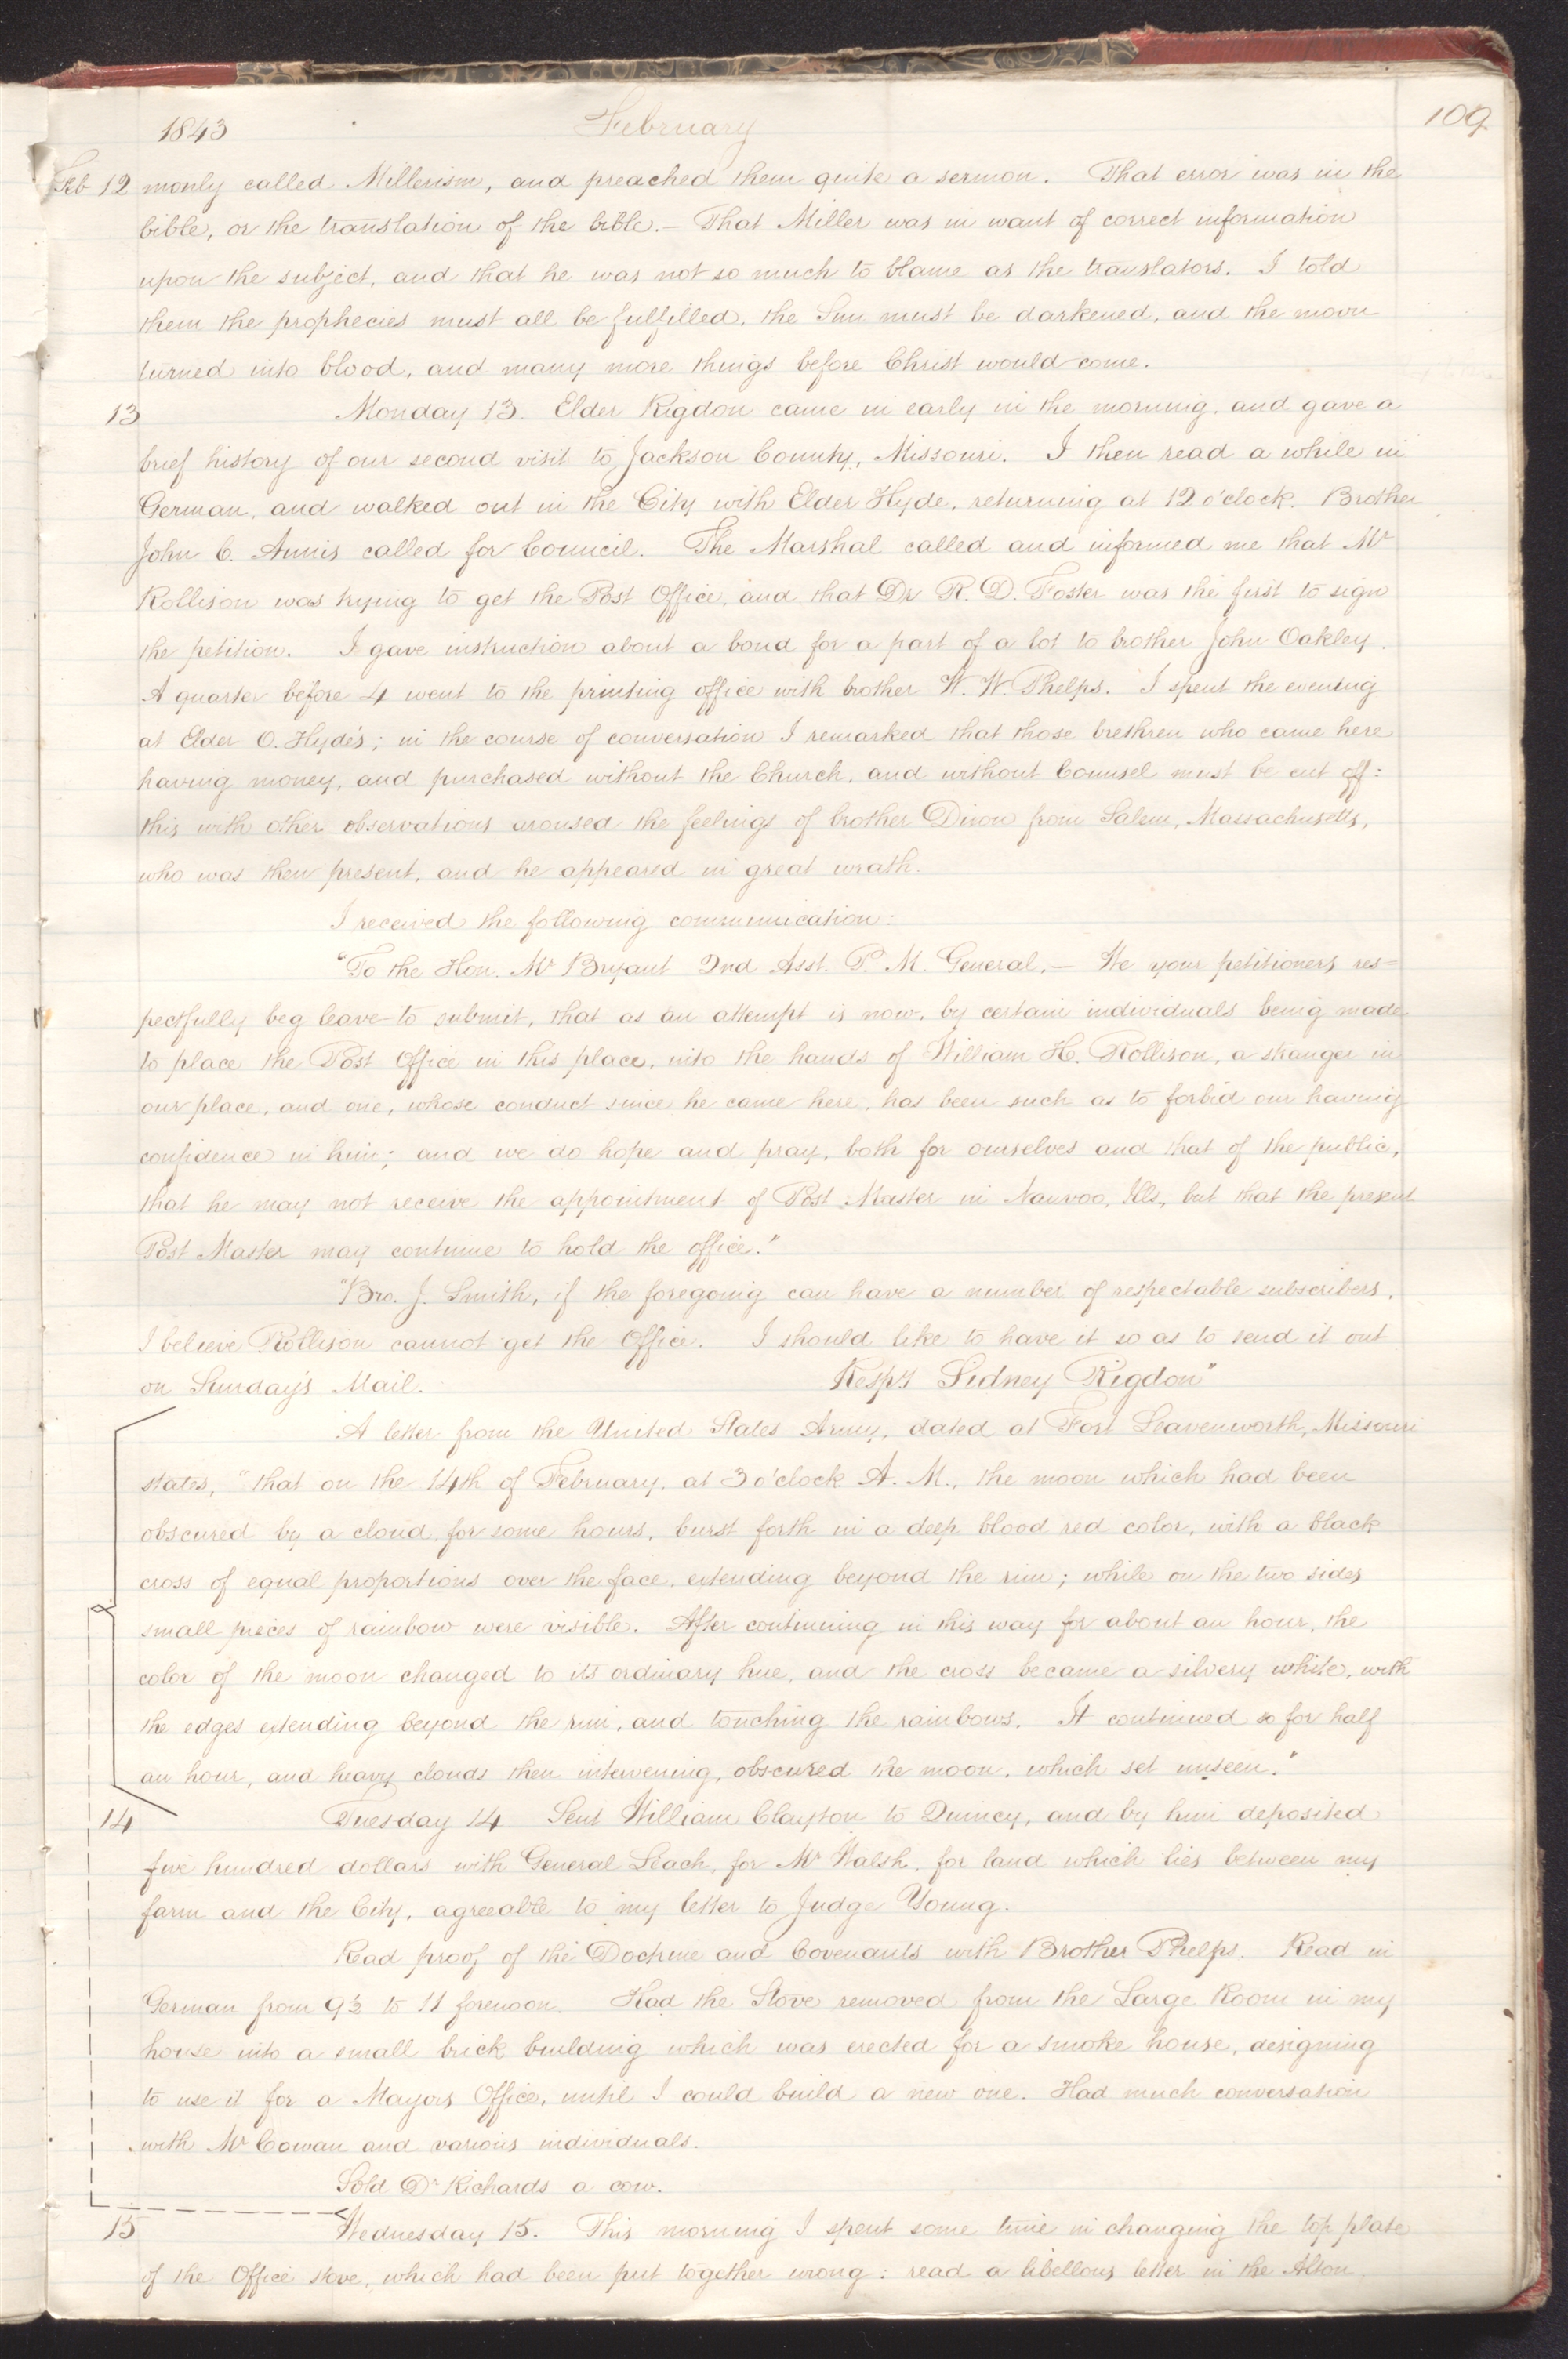 1843 February 109
Feb 12 monly called Millerism, and preached them quite a sermon. That error was in the
bible, or the translation of the bible.— That Miller was in want of correct information
upon the subject, and that he was not so much to blame as the translators. I told
them the prophecies must all be fulfilled, the Sun must be darkened, and the moon
turned into blood, and many more things before Christ would come.
13 Monday 13. Elder Rigdon came in early in the morning, and gave a
brief history of our second visit to Jackson County, Missouri. I then read a while in
German, and walked out in the City with Elder Hyde, returning at 12 o'clock. Brother
John C. Annis called for Council. The Marshal called and informed me that Mr
Rollison was trying to get the Post Office, and that Dr R. D. Foster was the first to sign
the petition. I gave instruction about a bond for a part of a lot to brother John Oakley.
A quarter before 4 went to the printing office with brother W. W. Phelps. I spent the evening
at Elder O. Hyde's; in the course of conversation I remarked that those brethren who came here
having money, and purchased without the Church, and without Counsel must be cut off:
this with other observations aroused the feelings of brother Dixon from Salem, Massachusetts,
who was then present, and he appeared in great wrath.
I received the following communication:
"To the Hon. Mr Bryant 2nd Asst. P. M. General,— We your petitioners res=
pectfully beg leave to submit, that as an attempt is now, by certain individuals being made
to place the Post Office in this place, into the hands of William H. Rollison, a stranger in
our place, and one, whose conduct since he came here, has been such as to forbid our having
confidence in him; and we do hope and pray, both for ourselves and that of the public,
that he may not receive the appointment of Post Master in Nauvoo, Ills., but that the present
Post Master may continue to hold the office."
"Bro. J. Smith, if the foregoing can have a number of respectable subscribers,
I believe Rollison cannot get the Office. I should like to have it so as to send it out
on Sunday's Mail. Respy Sidney Rigdon"
A letter from the United States Army, dated at Fort Leavenworth, Missouri
states, "that on the 14th of February, at 3 o'clock A. M., the moon which had been
obscured by a cloud for some hours, burst forth in a deep blood red color, with a black
cross of equal proportions over the face, extending beyond the rim; while on the two sides
small pieces of rainbow were visible. After continuing in this way for about an hour, the
color of the moon changed to its ordinary hue, and the cross became a silvery white, with
the edges extending beyond the rim, and touching the rainbows. It continued so for half
an hour, and heavy clouds then intervening, obscured the moon, which set unseen."
14 Tuesday 14 Sent William Clayton to Quincy, and by him deposited
five hundred dollars with General Leach, for Mr Walsh, for land which lies between my
farm and the City, agreeable to my letter to Judge Young.
Read proof of the Doctrine and Covenants with Brother Phelps. Read in
German from 9½ to 11 forenoon. Had the Stove removed from the Large Room in my
house into a small brick building which was erected for a smoke house, designing
to use it for a Mayors Office, until I could build a new one. Had much conversation
with Mr Cowan and various individuals.
Sold Dr Richards a cow.
15 Wednesday 15. This morning I spent some time in changing the top plate
of the Office stove, which had been put together wrong: read a libellous letter in the Alton